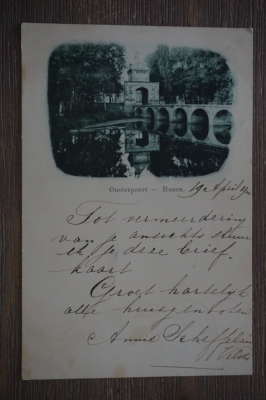 Oosterpoort — Hoorn.
19 April
Tot vermeerdering
van je ansichts stuur
ik je deze brief-
kaart
Groet hartelijk
alle huisgenoten
Annie Scheffelaar